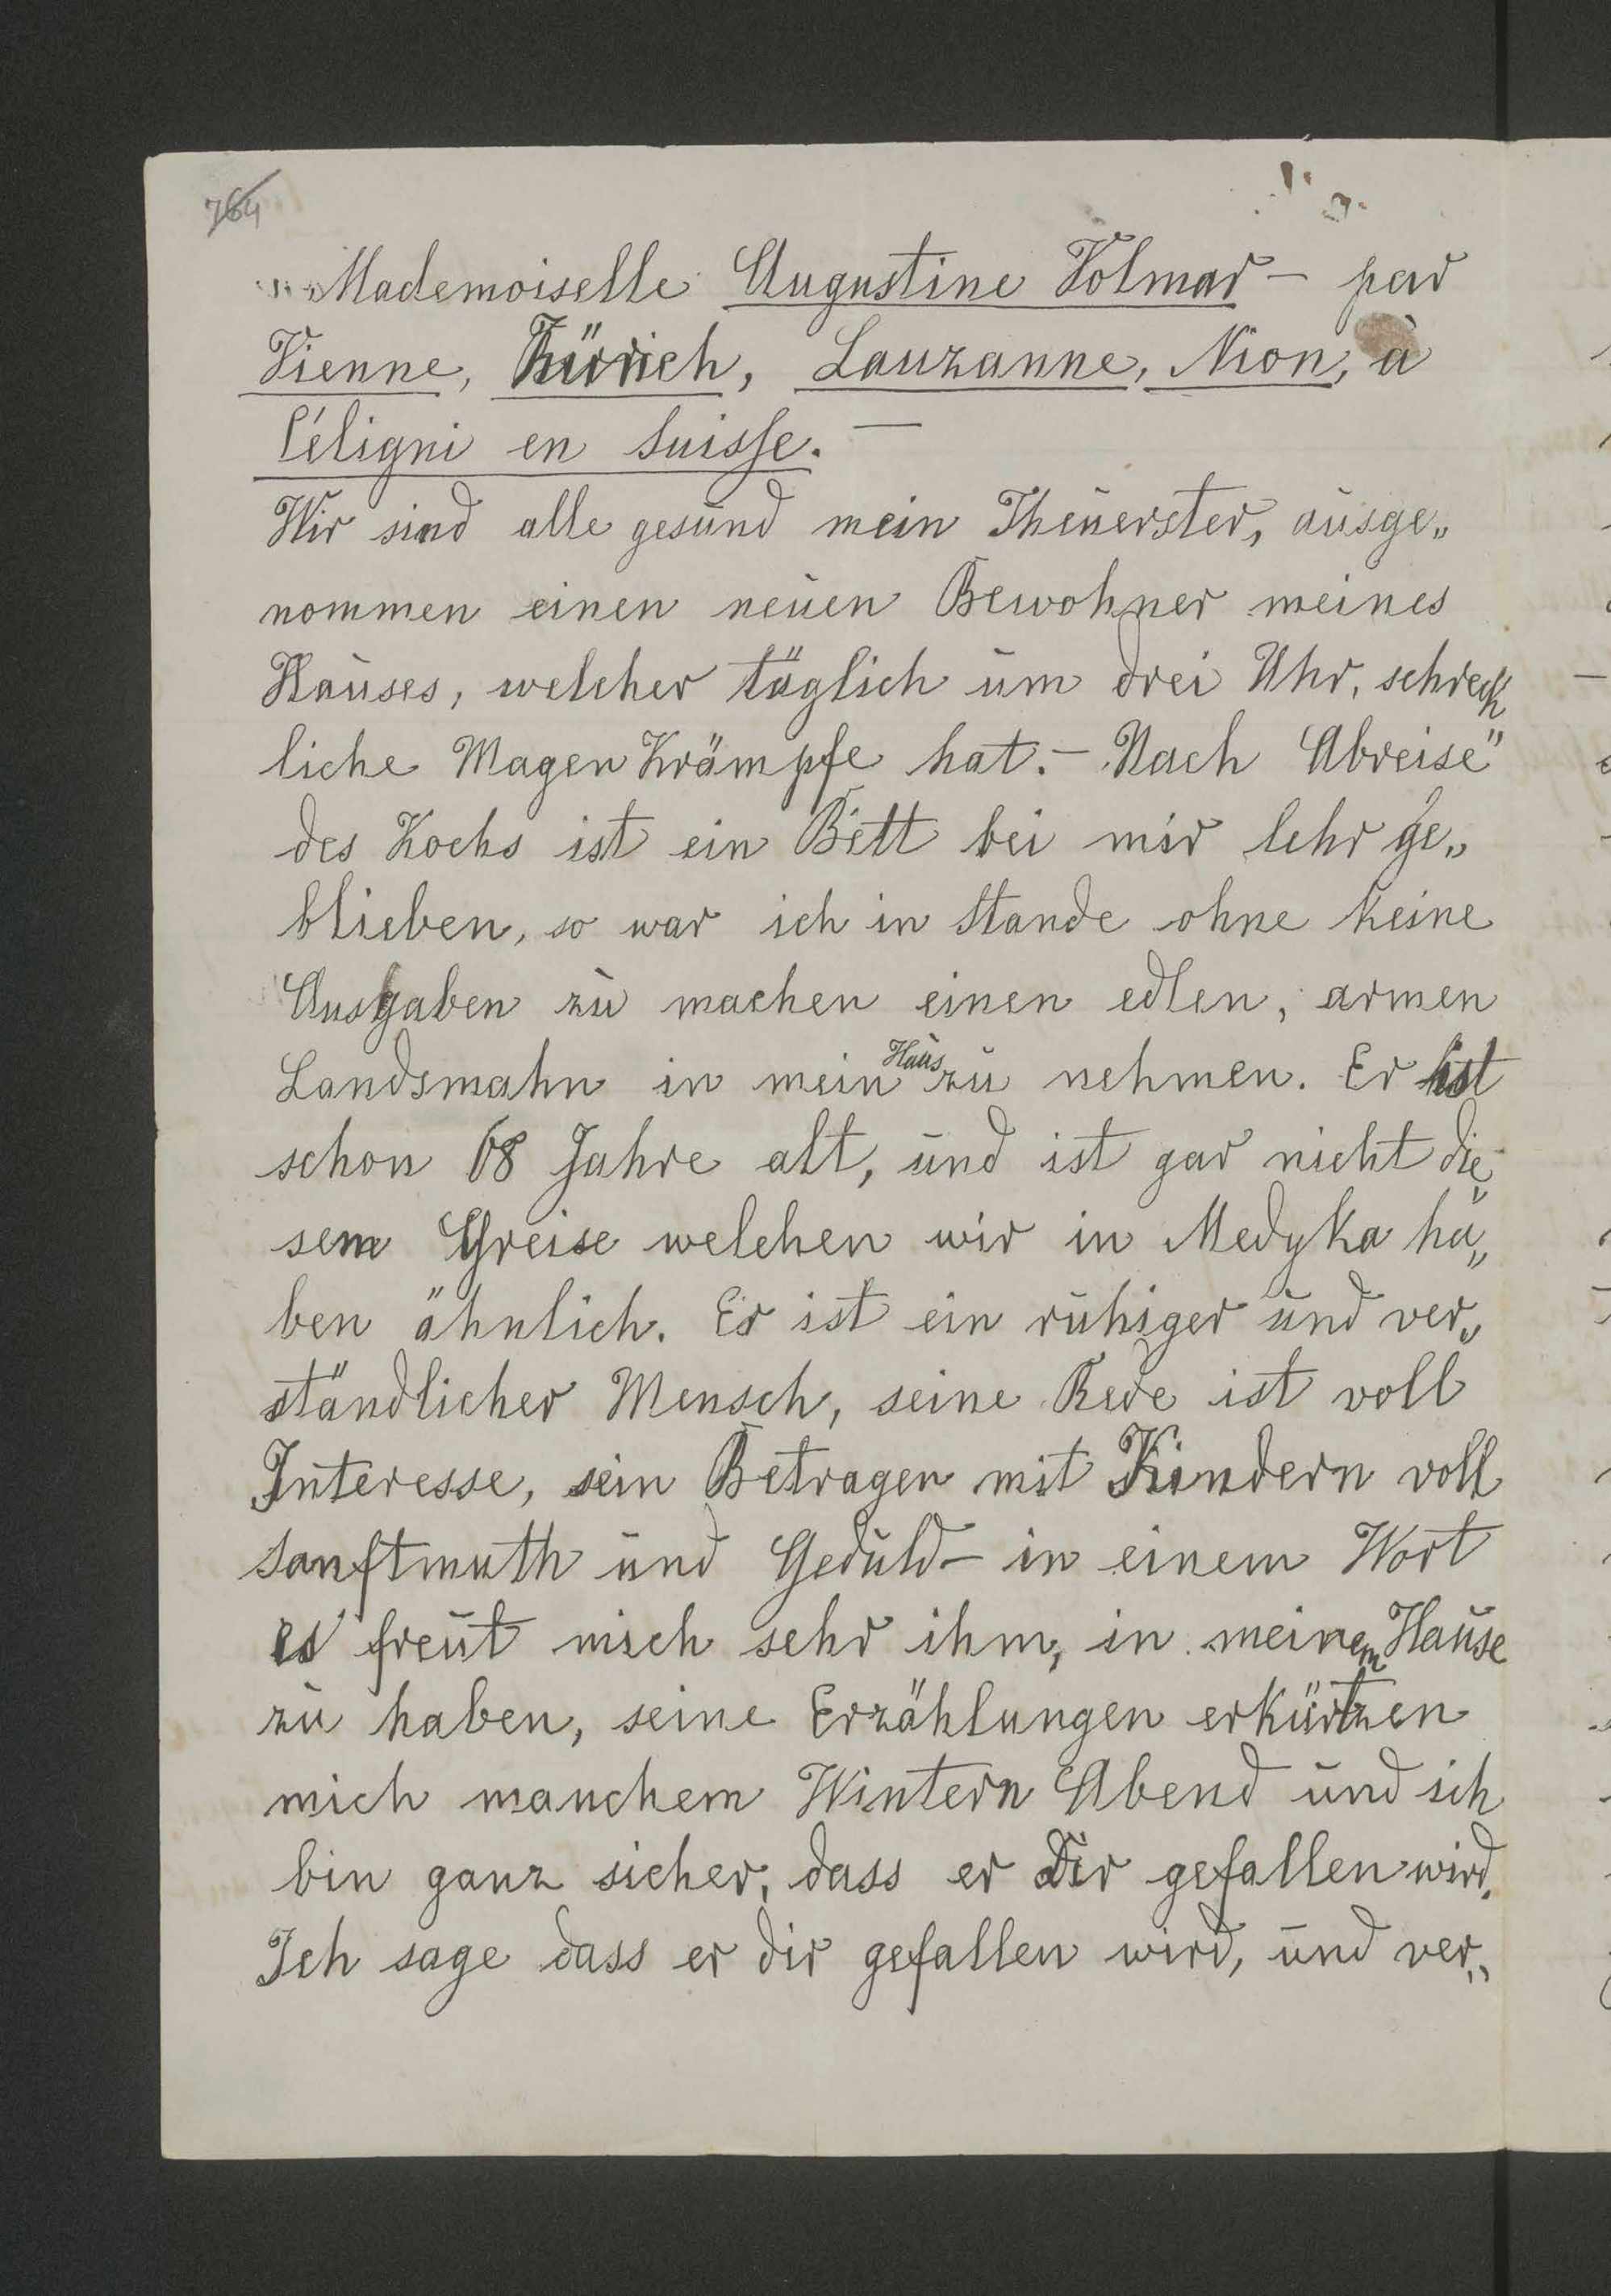 764
Mademoiselle Augustine Volmar – par
Vienne, Zürich, Lauzanne, Nion, à
Céligni en Suisse. –
Wir sind alle gesund mein Theuerster, ausge„
nommen einen neuen Bewohner meines
Hauses, welcher täglich um drei Uhr, schreck
liche Magen Krämpfe hat. – Nach Abreise
des Kochs ist ein Bett bei mir lehr ge„
blieben, so war ich in Stande ohne keine
Ausgaben zu machen einen edlen, armen
Landsmahn in mein Haus zu nehmen. Er ist
schon 68 Jahre alt, und ist gar nicht die„
sem Greise welchen wir in Medyka ha„
ben ähnlich. Er ist ein ruhiger und ver„
ständlicher Mensch, seine Rede ist voll
Interesse, sein Betragen mit Kindern voll
Sanftmuth und Geduld – in einem Wort
es freut mich sehr ihm, in meinem Hause
zu haben, seine Erzählungen erkürtzen
mich manchem Wintern Abend und ich
bin ganz sicher, dass er Dir gefallen wird.
Ich sage dass er dir gefallen wird, und ver„